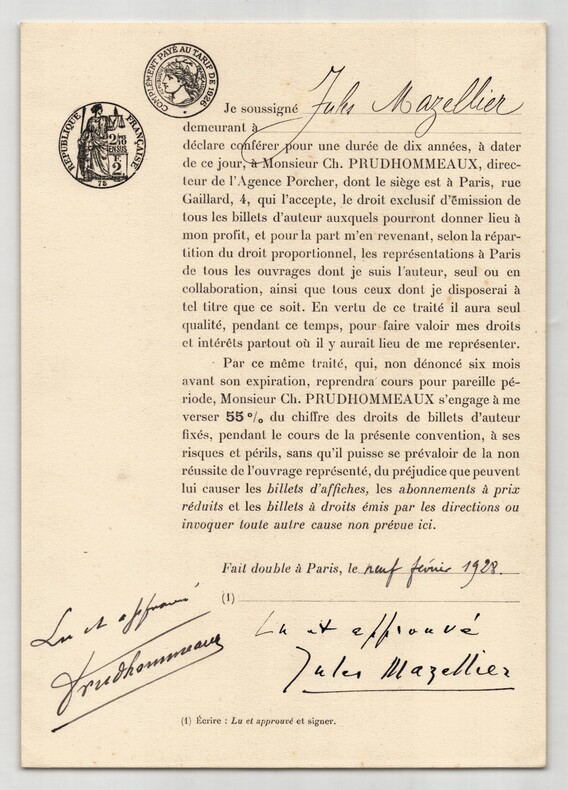 COMPLÉMENT PAYÉ AU TARIF DE 1926
RÉPUBLIQUE FRANÇAISE
2/10
EN SUS
F
2
75
Je soussigné Jules Mazellier
demeurant à
déclare conférer pour une durée de dix années, à dater
de ce jour, à Monsieur Ch. PRUDHOMMEAUX, direc-
teur de l'Agence Porcher, dont le siège est à Paris, rue
Gaillard, 4, qui l'accepte, le droit exclusif d'émission de
tous les billets d'auteur auxquels pourront donner lieu à
mon profit, et pour la part m'en revenant, selon la répar-
tition du droit proportionnel, les représentations à Paris
de tous les ouvrages dont je suis l'auteur, seul ou en
collaboration, ainsi que tous ceux dont je disposerai à
tel titre que ce soit. En vertu de ce traité il aura seul
qualité, pendant ce temps, pour faire valoir mes droits
et intérêts partout où il y aurait lieu de me représenter.
Par ce même traité, qui, non dénoncé six mois
avant son expiration, reprendra cours pour pareille pé-
riode, Monsieur Ch. PRUDHOMMEAUX s'engage à me
verser 55 % du chiffre des droits de billets d'auteur
fixés, pendant le cours de la présente convention, à ses
risques et périls, sans qu'il puisse se prévaloir de la non
réussite de l'ouvrage représenté, du préjudice que peuvent
lui causer les billets d'affiches, les abonnements à prix
réduits et les billets à droits émis par les directions ou
invoquer toute autre cause non prévue ici.
Fait double à Paris, le neuf février 1928.
(1)
Lu et approuvé
Prudhommeaux
Lu et approuvé
Jules Mazellier
(1) Écrire : Lu et approuvé et signer.